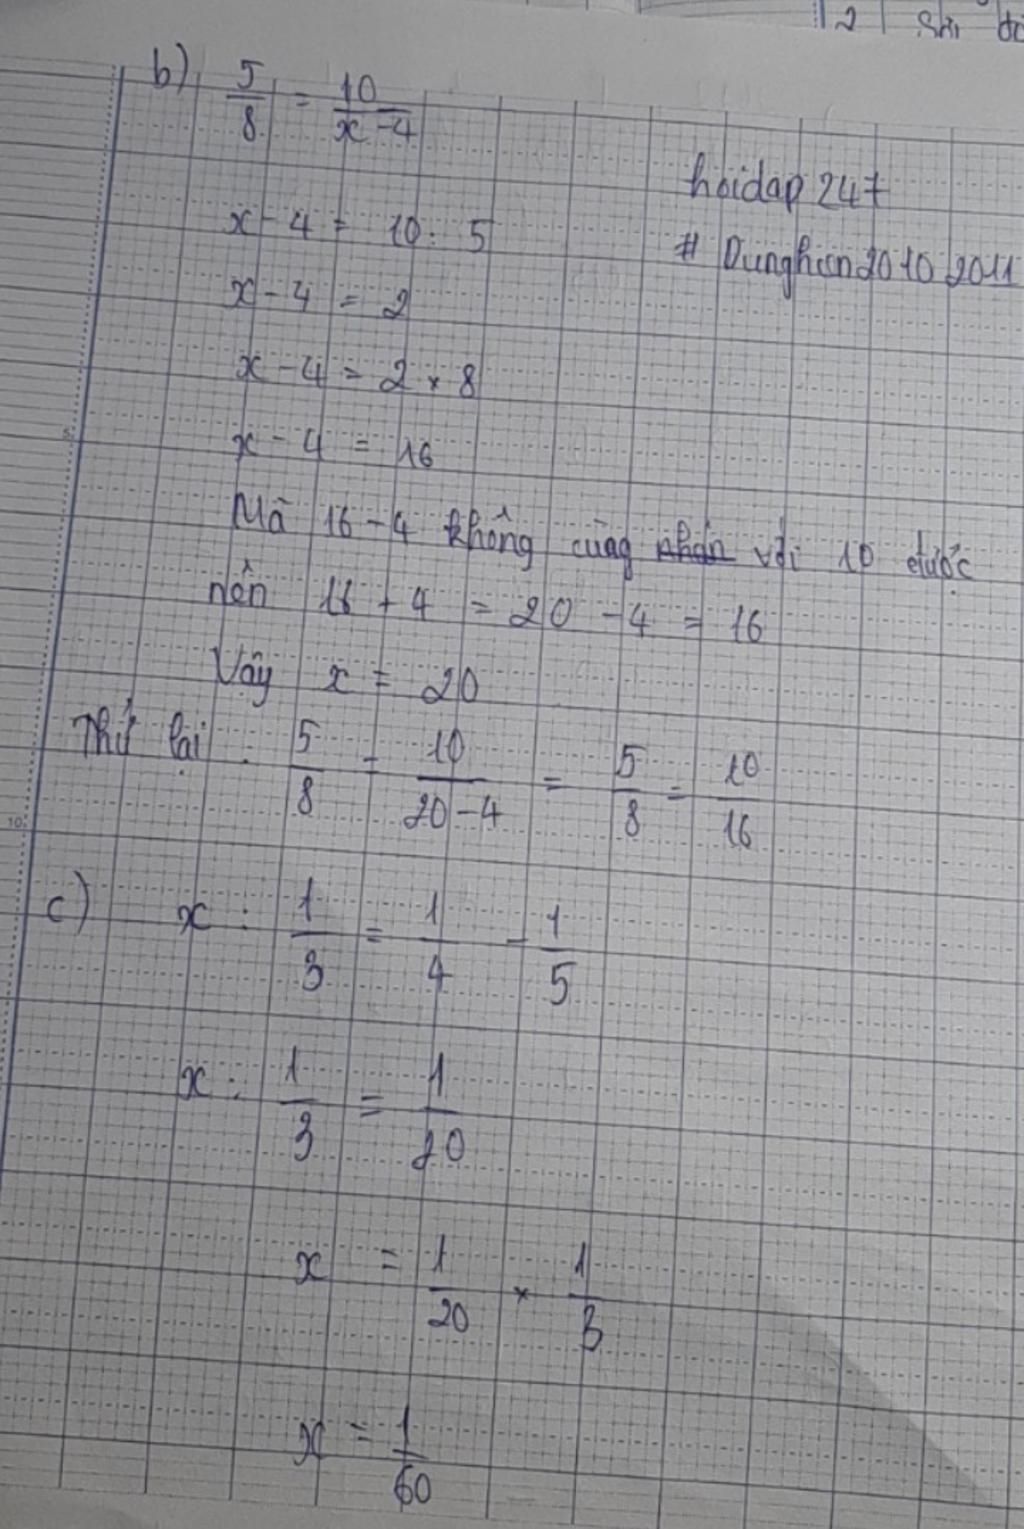 2 Sửi
b) 5/8 = 10/(x - 4)
hoidap 247
# Dunghien20102011
x - 4 = 10 : 5
x - 4 = 2
x - 4 = 2 × 8
x - 4 = 16
Mà 16 - 4 không cùng với 10 được
nên 16 + 4 = 20 - 4 = 16
Vậy x = 20
Thử lại : 5/8 = 10/(20 - 4) = 5/8 = 10/16
c) x : 1/3 = 1/4 - 1/5
x : 1/3 = 1/20
x = 1/20 × 1/3
x = 1/60